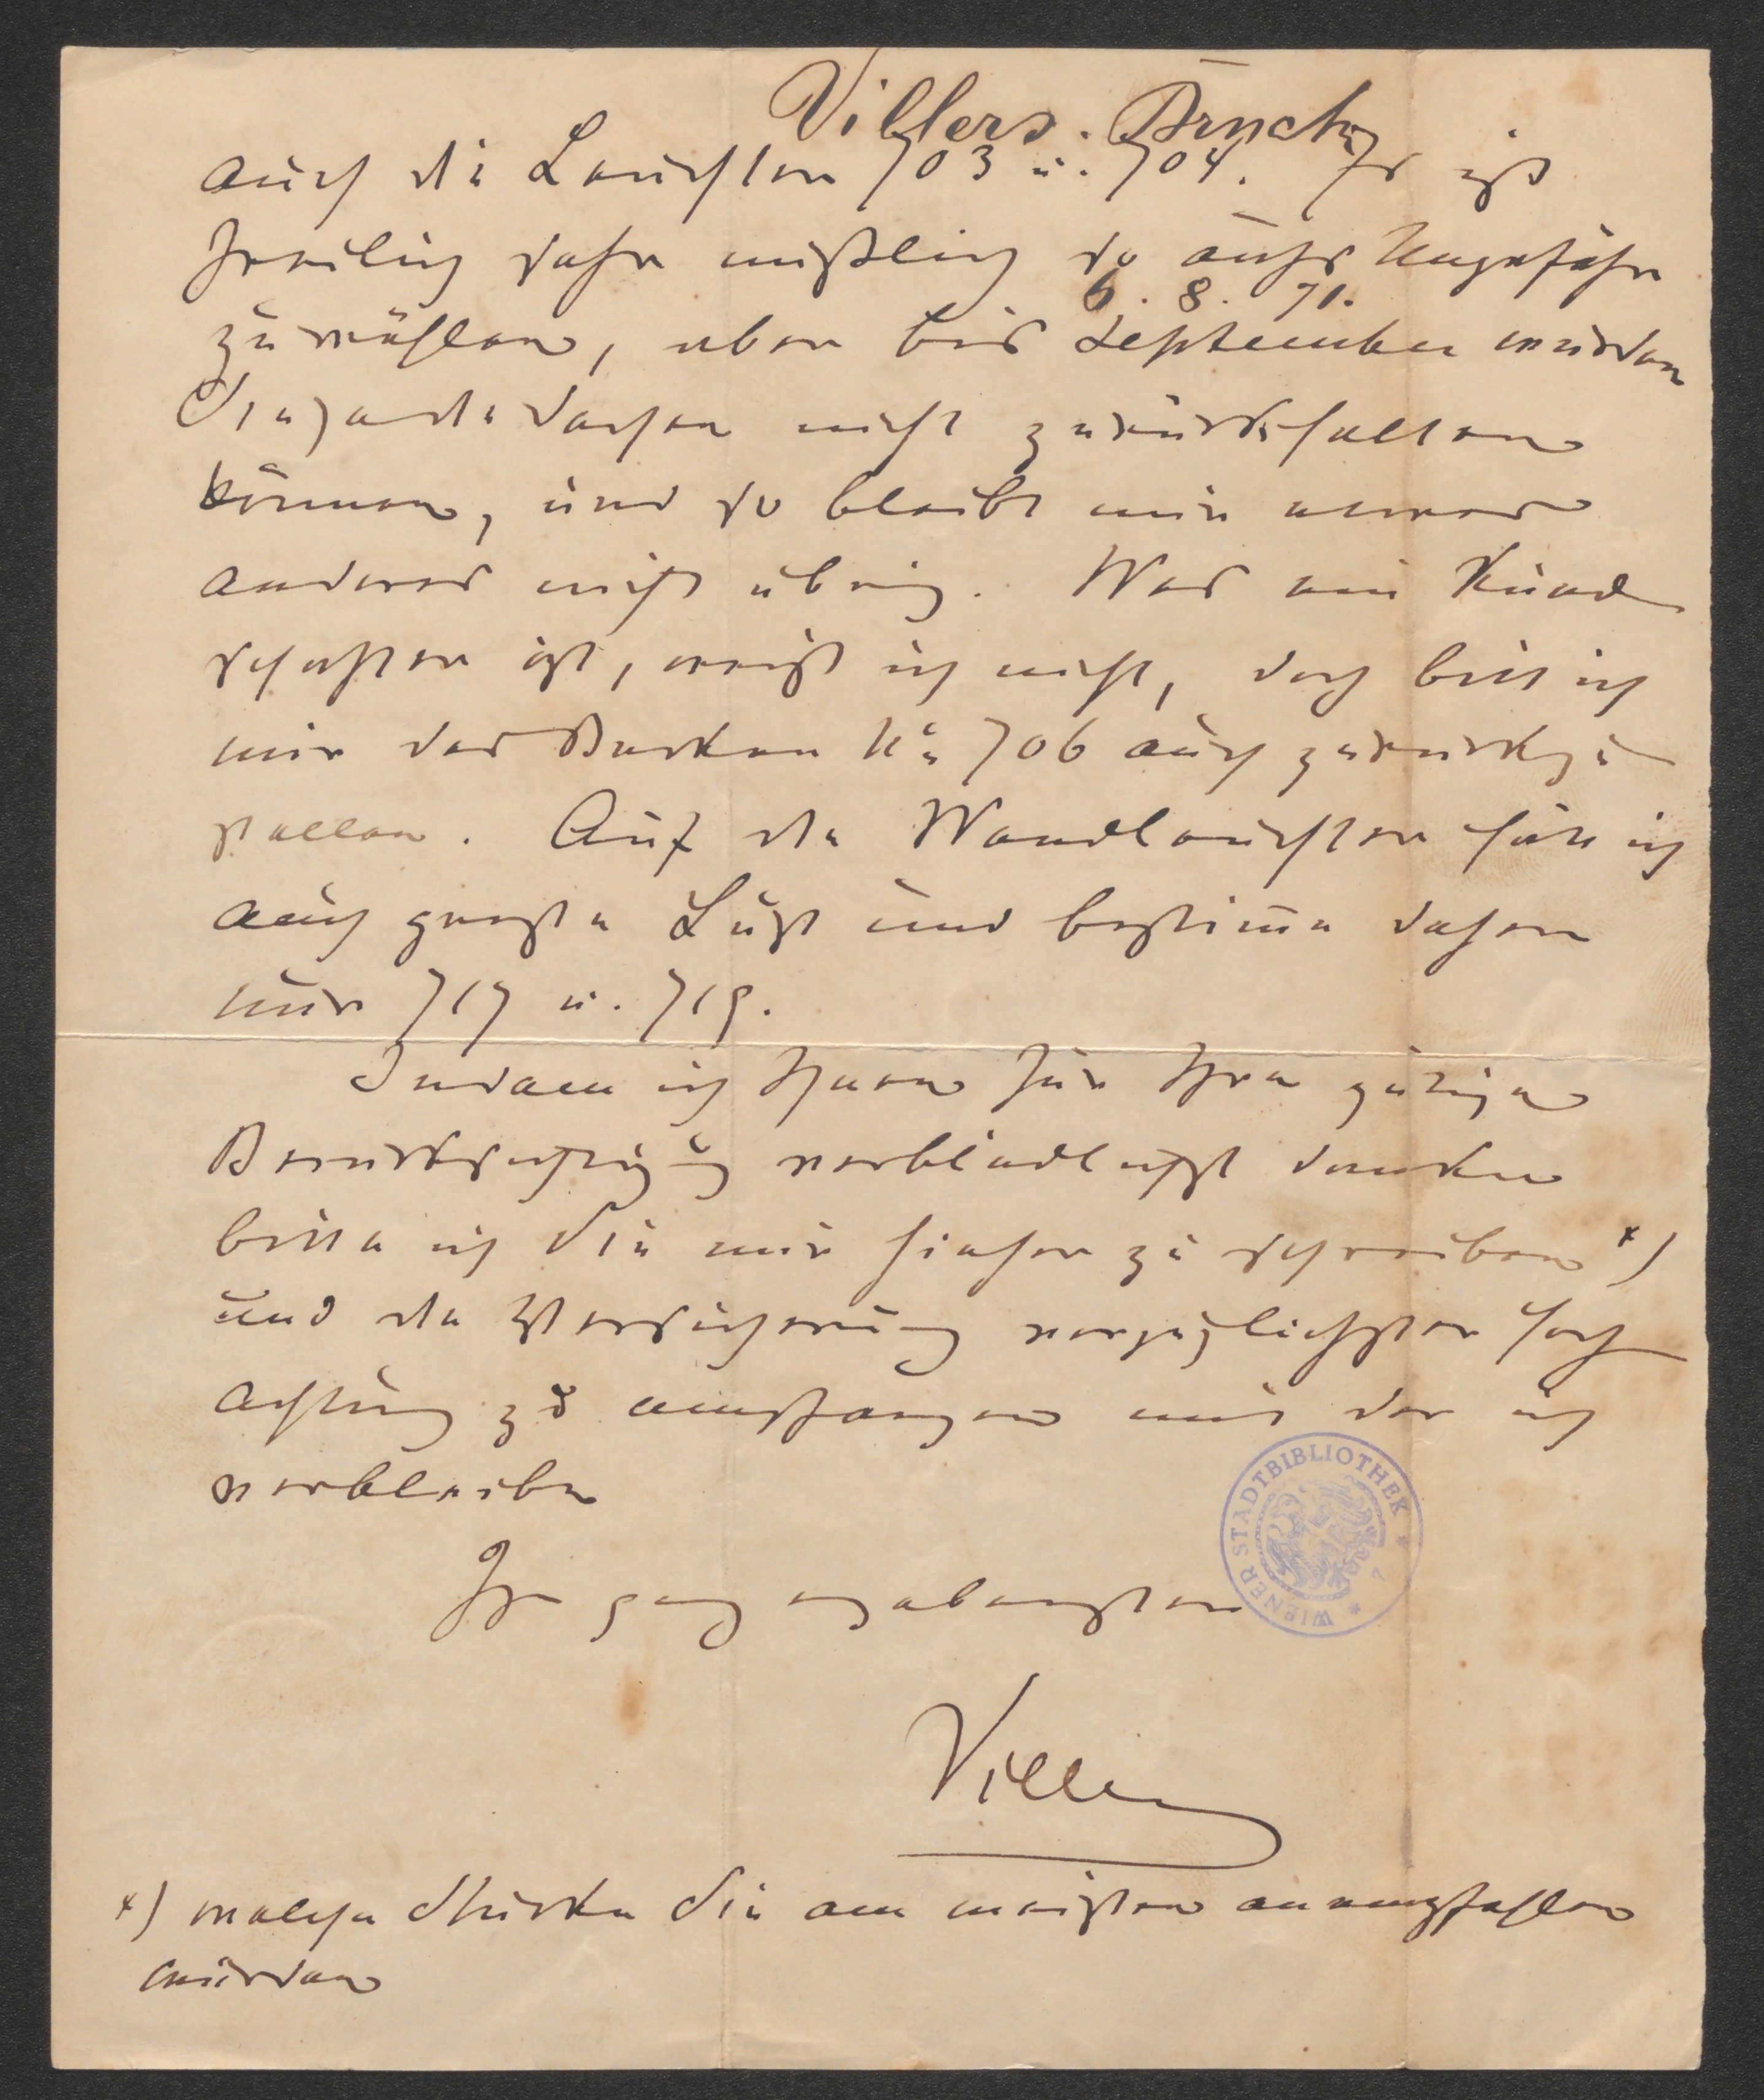 Villers. Bruck
auch die Leuchter 703 u. 704. Es ist
freilich sehr mißlich so aufs Ungefähr
6. 8. 71.
zu wählen, aber bis September werden
Sie jene Sachen nicht zurückhalten
können, und so bleibt mir etwas
anderes nicht übrig. Was ein Künd
schafter ist, weiß ich nicht, doch bitt ich
mir das Becken No 706 auch zurückzu
stellen. Auf die Wandleuchter hätt ich
auch große Lust und bestimme daher
nur 717 u. 719.
Indem ich Ihnen für Ihre gütige
Berücksichtigung verbindlichst danke
bitte ich Sie mir hieher zu schreiben *)
und die Versicherung vorzüglichster Hoch
achtung zu empfangen mit der ich
verbleibe
Ihr ganz ergebenster
Villers
WIENER STADTBIBLIOTHEK
*) welche Stücke Sie am meisten anempfehlen
würden